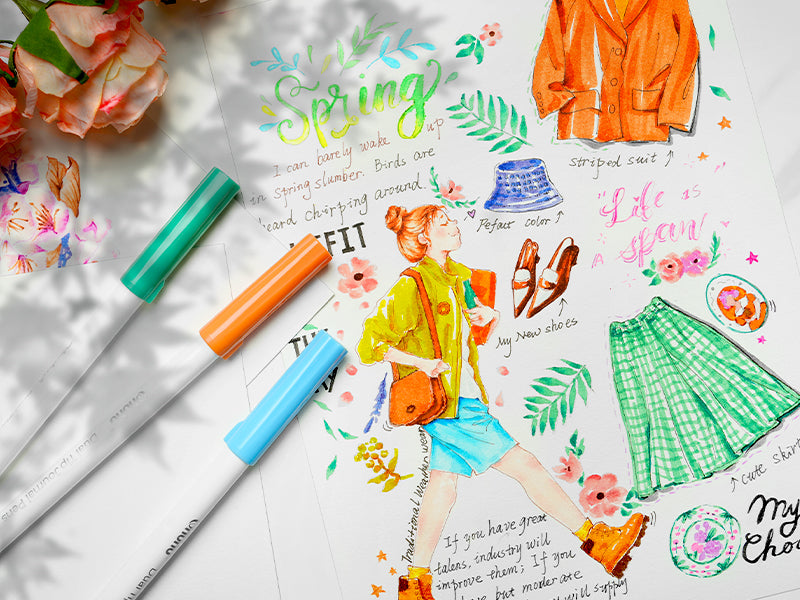 Spring
I can barely wake up
in Spring slumber. Birds are
heard chirping around.
striped suit
Pefect color
"Life is
A span"
My New shoes
Cute skirt
Traditional Weather wear
If you have great
talens, industry will
improve them; If you
have but moderate
will supply
My
Ohuhu
Dual Tip Journal Pens
Ohuhu